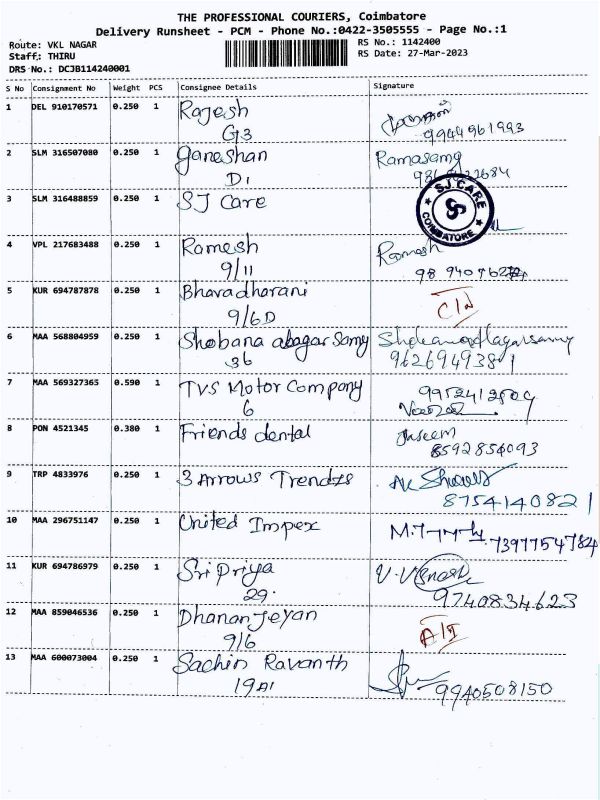 THE PROFESSIONAL COURIERS, Coimbatore
Delivery Runsheet - PCM - Phone No.:0422-3505555 - Page No.:1
Route: VKL NAGAR
RS No.: 1142400
Staff: THIRU
RS Date: 27-Mar-2023
DRS No.: DCJB114240001
S No Consignment No Weight PCS Consignee Details Signature
1 DEL 910170571 0.250 1 Rajesh
G3 9944961993
2 SLM 316507080 0.250 1 Ganeshan Ramasamy
D1
3 SLM 316488859 0.250 1 SJ Care S.J.CARE COIMBATORE
4 VPL 217683488 0.250 1 Ramesh Ramesh
9/11
5 KUR 694787878 0.250 1 Bharadharani
9/6D
6 MAA 568804959 0.250 1 Shobana alagar Samy
36 9626949381
7 MAA 569327365 0.590 1 TVS Motor Company
6
8 PON 4521345 0.380 1 Friends dental
8592856093
9 TRP 4833976 0.250 1 3 Arrows Trendzs
8754140821
10 MAA 296751147 0.250 1 United Impex
7397754784
11 KUR 694786979 0.250 1 Sri Priya
29. 9740834623
12 MAA 859046536 0.250 1 Dhananjeyan
9/6
13 MAA 600073004 0.250 1 Sachin Ravanth
19A1 9940508150